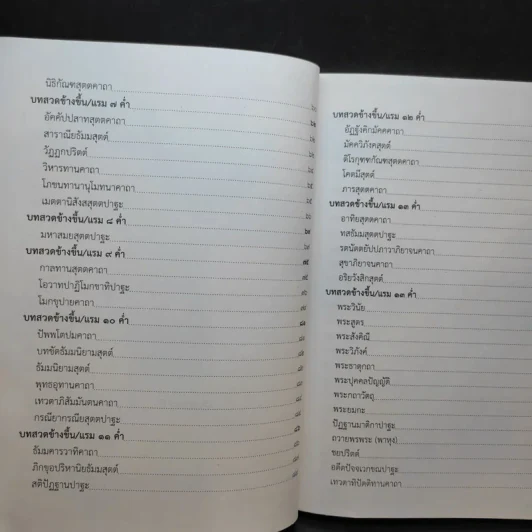 นิธิกัณฑสุตตคาถา
บทสวดข้างขึ้น/แรม ๗ ค่ำ
อัคคัปปสาทสุตตคาถา
สาราณียธัมมสุตต์
วัฏฏกปริตต์
วิหารทานคาถา
โภชนทานานุโมทนาคาถา
เมตตานิสังสสุตตปาฐะ
บทสวดข้างขึ้น/แรม ๘ ค่ำ
มหาสมยสุตตปาฐะ
บทสวดข้างขึ้น/แรม ๙ ค่ำ
กาลทานสุตตคาถา
โอวาทปาฏิโมกขาทิปาฐะ
โมกขุปายคาถา
บทสวดข้างขึ้น/แรม ๑๐ ค่ำ
ปัพพโตปมคาถา
บทขัดธัมมนิยามสุตต์
ธัมมนิยามสุตต์
พุทธอุทานคาถา
เทวตาภิสัมมันตนคาถา
กรณียากรณียสุตตปาฐะ
บทสวดข้างขึ้น/แรม ๑๑ ค่ำ
ธัมมคารวาทิคาถา
ภิกขุอปริหานิยธัมมสุตต์
สติปัฏฐานปาฐะ
บทสวดข้างขึ้น/แรม ๑๒ ค่ำ
อัฏฐังคิกมัคคคาถา
มัคควิภังคสุตต์
ติโรกุฑฑกัณฑสุตตคาถา
โคตมีสุตต์
ภารสุตตคาถา
บทสวดข้างขึ้น/แรม ๑๓ ค่ำ
อาทิยสุตตคาถา
ทสธัมมสุตตปาฐะ
รตนัตตยัปปภาวาภิยาจนคาถา
สุขาภิยาจนคาถา
อริยวังสิกสุตต์
บทสวดข้างขึ้น/แรม ๑๓ ค่ำ
พระวินัย
พระสูตร
พระสังคิณี
พระวิภังค์
พระธาตุกถา
พระปุคคลปัญญัติ
พระกถาวัตถุ
พระยมกะ
ปัฏฐานมาติกาปาฐะ
ถวายพรพระ (พาหุง)
ชยปริตต์
อตีตปัจจเวกขณปาฐะ
เทวตาทิปัตติทานคาถา